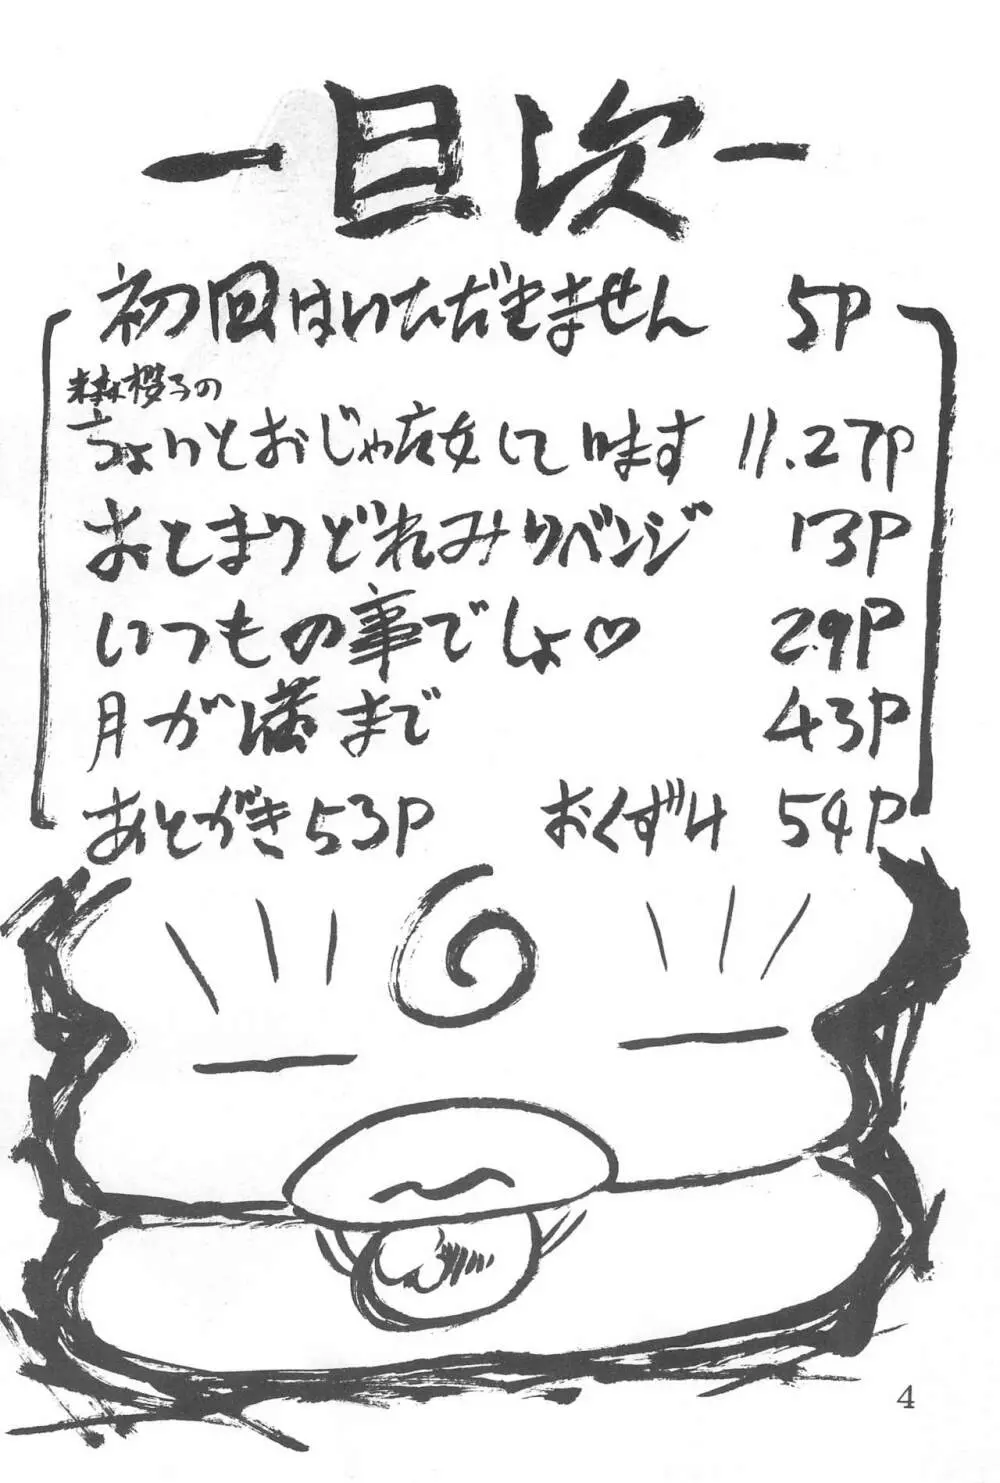 ー目次ー
初回はいただきません 5P
森櫻子の
ちょいとおじゃ魔女して います 11.27P
おとまりどれみリベンジ 13P
いつもの事でしょ♡ 29P
月が満まで 43P
あとがき53P おくずけ 54P
4